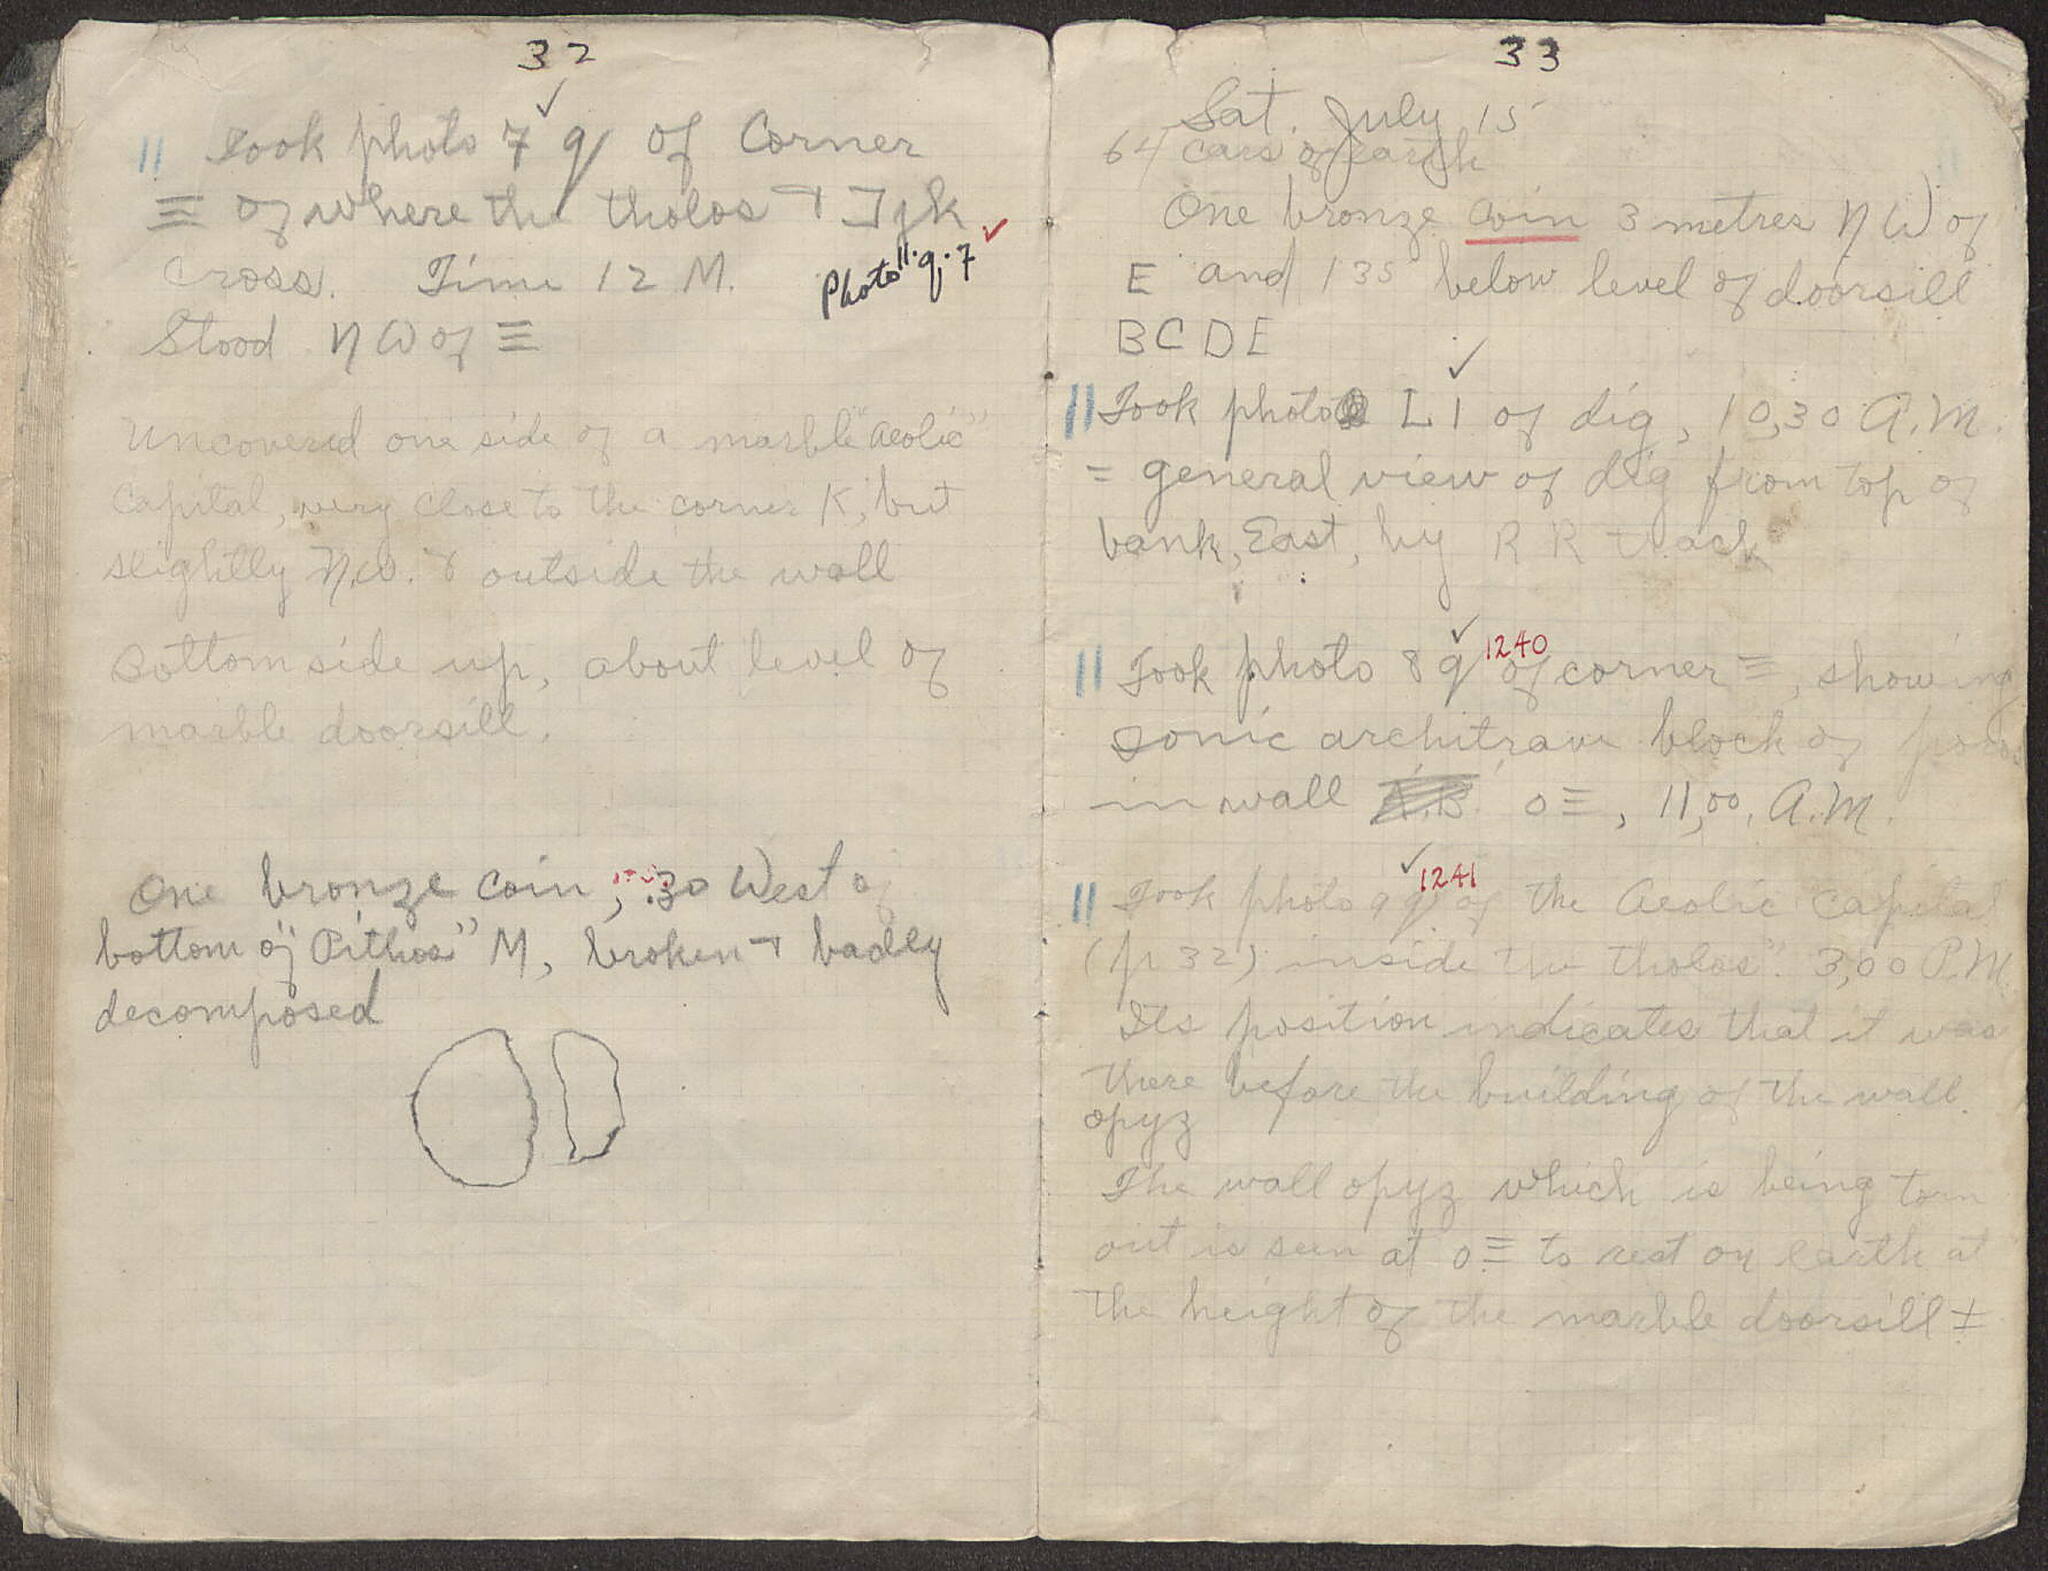 32
11 Took photo 7 q of Corner
Ξ of where the tholos + Ijk
cross. Time 12 M.
Photo 11.q.7
Stood NW of Ξ
Uncovered one side of a marble "Aeolic"
Capital, very close to the corner K, but
slightly N.W. & outside the wall
Bottom side up, about level of
marble doorsill.
One bronze coin, .30 West of
bottom of "Pithos" M, broken + badly
decomposed
33
Sat. July 15
64 cars of earth
One bronze coin 3 metres NW of
E and 1 35 below level of doorsill
B C D E
11 Took photo L 1 of dig, 10,30 A.M.
= general view of dig from top of
bank, East, by R R track
1240
11 Took photo 8 q of corner Ξ, showing
Ionic architrave block of poros
in wall A.B. oΞ, 11,00, A.M.
1241
11 Took photo 9 q of the Aeolic Capital
(p 32) inside the tholos". 3,00 P.M.
Its position indicates that it was
there before the building of the wall.
opyz
The wall opyz which is being torn
out is seen at oΞ to rest on earth at
the height of the marble doorsill ±